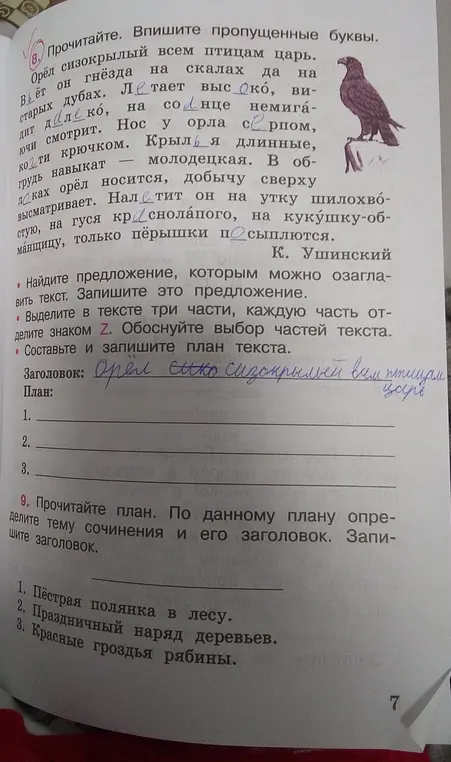 8. Прочитайте. Впишите пропущенные буквы.
Орёл сизокрылый всем птицам царь.
Вьёт он гнёзда на скалах да на
старых дубах. Летает высоко, ви-
дит далеко, на солнце немига́-
ючи смотрит. Нос у орла серпом,
когти крючком. Крылья длинные,
грудь навыкат — молодецкая. В об-
лаках орёл носится, добычу сверху
высматривает. Налетит он на утку шилохво́-
стую, на гуся краснолапого, на кукушку-об-
ма́нщицу, только пёрышки посыплются.
К. Ушинский
• Найдите предложение, которым можно озагла-
вить текст. Запишите это предложение.
• Выделите в тексте три части, каждую часть от-
делите знаком Z. Обоснуйте выбор частей текста.
• Составьте и запишите план текста.
Заголовок: Орёл сизокрылый всем птицам
План: царь
1.
2.
3.
9. Прочитайте план. По данному плану опре-
делите тему сочинения и его заголовок. Запи-
шите заголовок.
1. Пёстрая полянка в лесу.
2. Праздничный наряд деревьев.
3. Красные гроздья рябины.
7